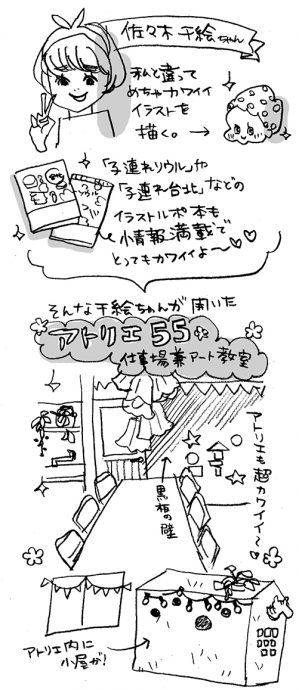 佐々木千絵ちゃん
私と違って
めちゃカワイイ
イラストを
描く。→
「子連れソウル」や
「子連れ台北」などの
イラストルポ本も
小情報満載で
とってもカワイイよ～
そんな千絵ちゃんが開いた
アトリエ55
仕事場兼アート教室
アトリエも超カワイイ～
黒板の壁
アトリエ内に
小屋が!